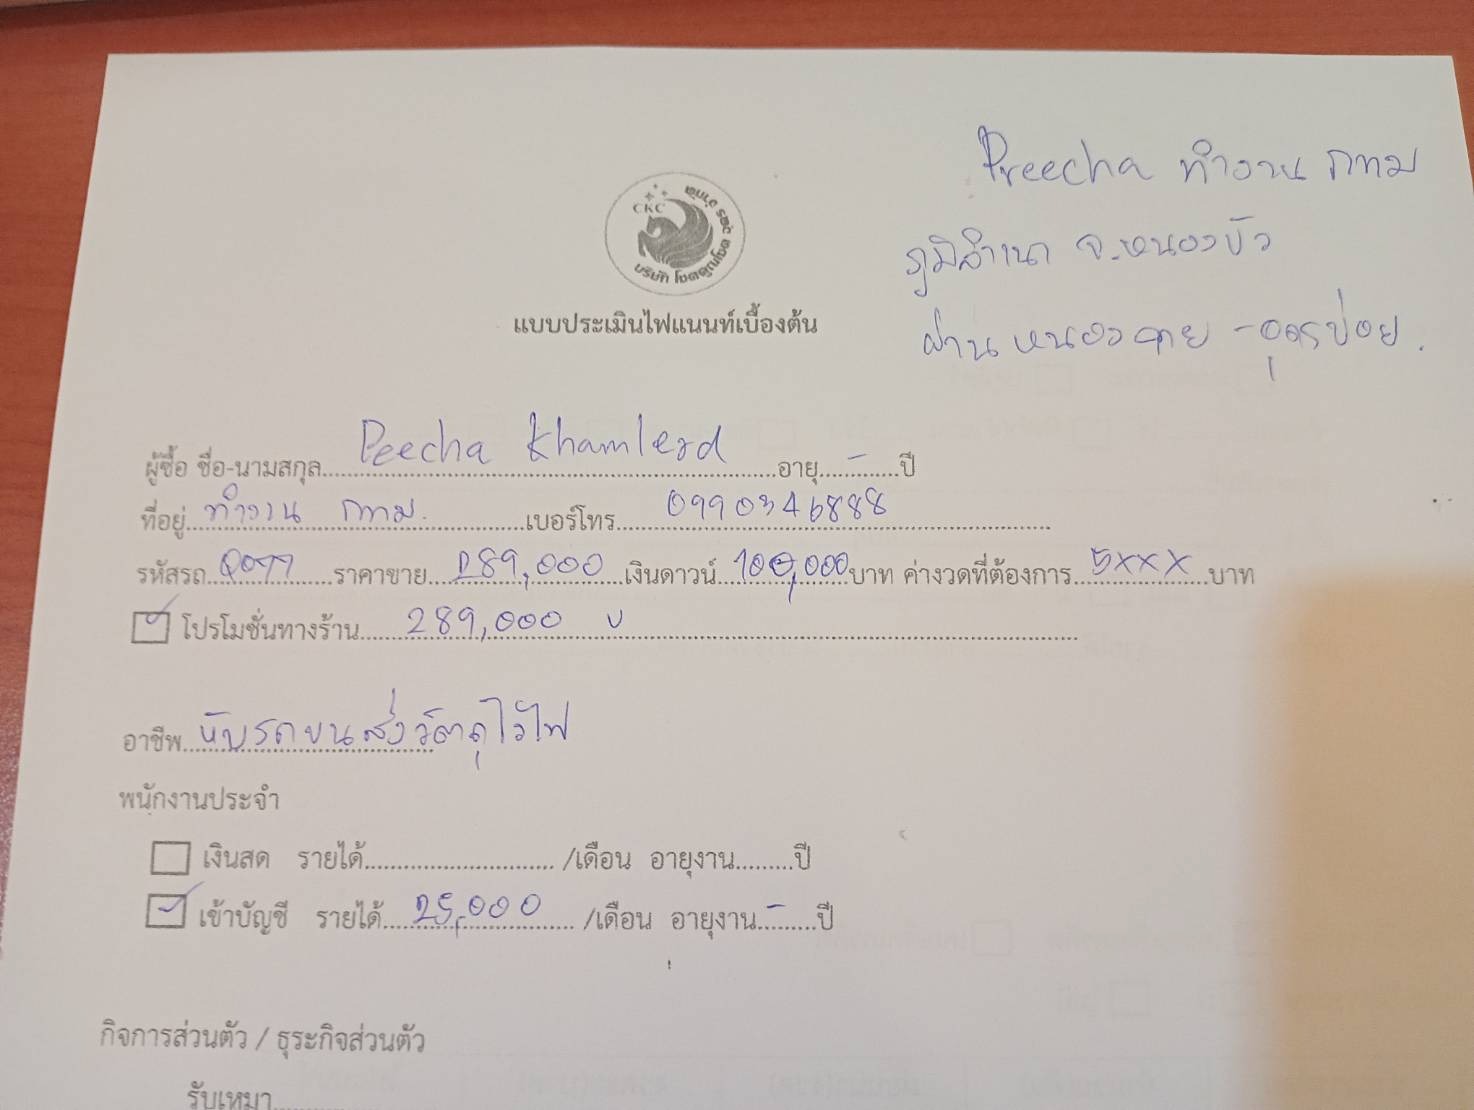 Preecha ทำงาน กทม
ภูมิลำเนา จ.หนองบัว
ผ่าน หนองคาย - อุดรบ่อย.
CKC
บริษัท โชคคูณโชค
แบบประเมินไฟแนนท์เบื้องต้น
ผู้ซื้อ ชื่อ-นามสกุล Peecha Khamlerd อายุ - ปี
ที่อยู่ ทำงาน กทม. เบอร์โทร 0990346888
รหัสรถ ราคาขาย 289,000 เงินดาวน์ 100,000 บาท ค่างวดที่ต้องการ 5xxx บาท
โปรโมชั่นทางร้าน 289,000 บ
อาชีพ ขับรถขนส่งวัตถุไวไฟ
พนักงานประจำ
เงินสด รายได้ /เดือน อายุงาน ปี
เข้าบัญชี รายได้ 25,000 /เดือน อายุงาน - ปี
กิจการส่วนตัว / ธุระกิจส่วนตัว
รับเหมา